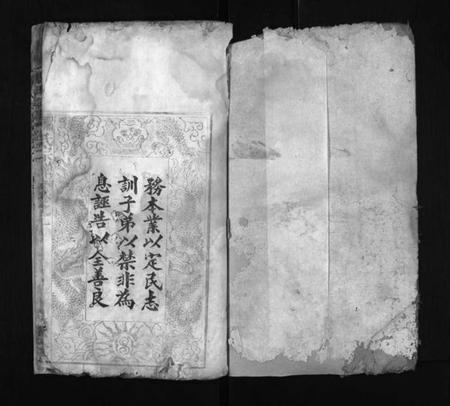 務本業以定民志
訓子弟以禁非為
息誣告以全善良